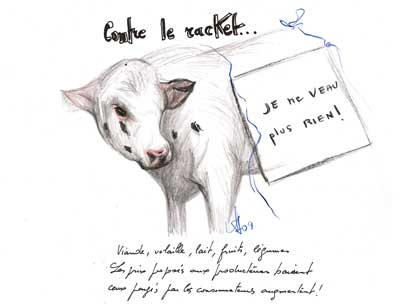 Contre le racket...
JE ne VEAU
plus RIEN!
Viande, volaille, lait, fruits, légumes
Les prix payés aux producteurs baissent
ceux payés par les consommateurs augmentent!